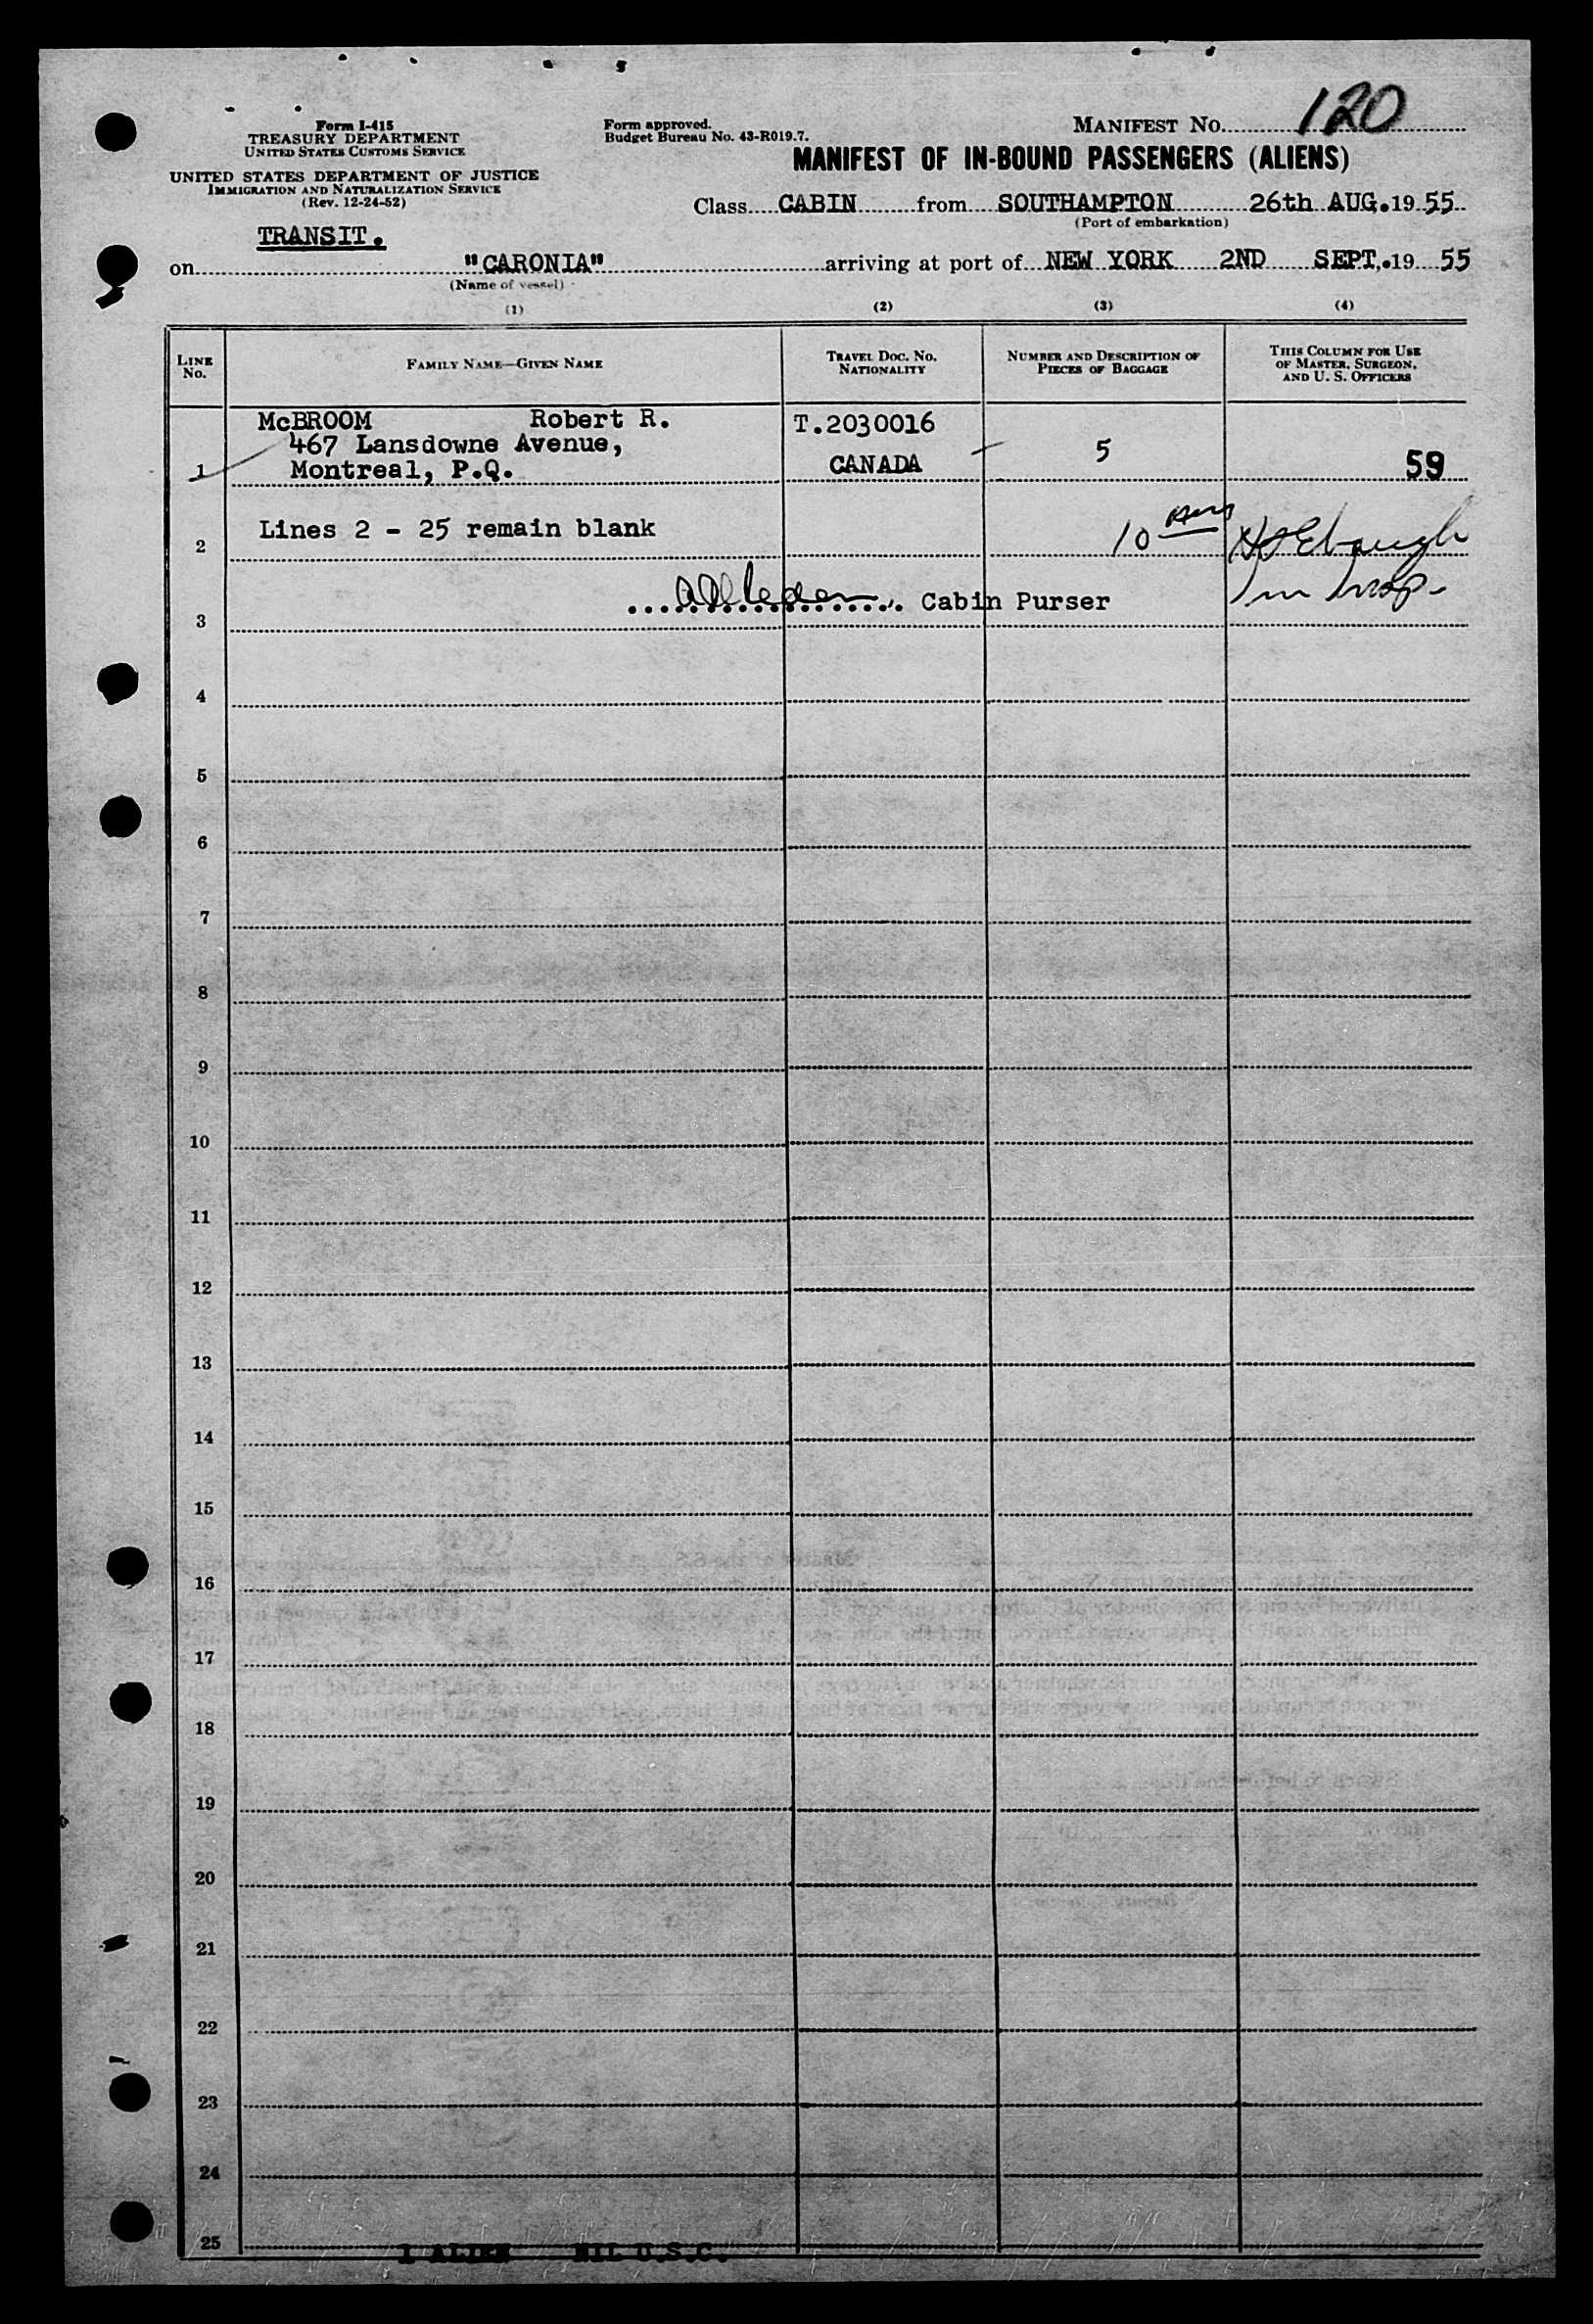 MANIFEST NO. 120
Form I-415
TREASURY DEPARTMENT
UNITED STATES CUSTOMS SERVICE
UNITED STATES DEPARTMENT OF JUSTICE
IMMIGRATION AND NATURALIZATION SERVICE
(Rev. 12-24-52)
Form approved.
Budget Bureau No. 43-R019.7.
MANIFEST OF IN-BOUND PASSENGERS (ALIENS)
Class CABIN from SOUTHAMPTON 26th AUG. 1955
(Port of embarkation)
TRANSIT.
on "CARONIA" arriving at port of NEW YORK 2ND SEPT. 1955
(Name of vessel)
(1) (2) (3) (4)
LINE No. FAMILY NAME—GIVEN NAME TRAVEL DOC. NO. NATIONALITY NUMBER AND DESCRIPTION OF PIECES OF BAGGAGE THIS COLUMN FOR USE OF MASTER, SURGEON, AND U. S. OFFICERS
McBROOM Robert R. T.2030016
467 Lansdowne Avenue, 5
1 Montreal, P.Q. CANADA 59
2 Lines 2 - 25 remain blank 10
3 Cabin Purser
4
5
6
7
8
9
10
11
12
13
14
15
16
17
18
19
20
21
22
23
24
25
1 ALIEN NIL U.S.C.